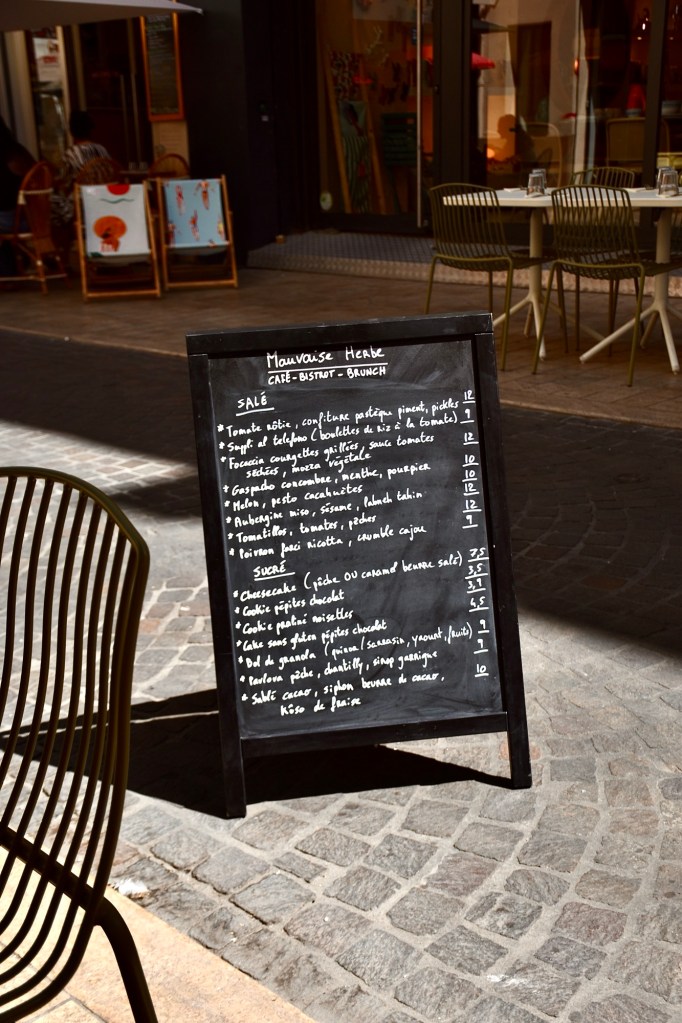 Mauvaise Herbe
CAFÉ-BISTROT-BRUNCH
SALÉ
* Tomate rôtie, confiture pastèque piment, pickles 12
* Suppli al telefono (boulettes de riz à la tomate) 9
* Focaccia courgettes grillées, sauce tomates 12
séchées, mozza végétale
* Gaspacho concombre, menthe, pourpier 10
* Melon, pesto cacahuètes 10
* Aubergine miso, sésame, labneh tahin 12
* Tomatillos, tomates, pêches 12
* Poivron farci ricotta, crumble cajou 9
SUCRÉ
* Cheesecake (pêche OU caramel beurre salé) 7,5
* Cookie pépites chocolat 3,5
* Cookie praliné noisettes 3,9
* Cake sans gluten pépites chocolat 4,5
* Bol de granola (quinoa/sarrasin, yaourt, fruits) 9
* Pavlova pêche, chantilly, sirop garrigue 9
* Sablé cacao, siphon beurre de cacao, 10
Kōso de fraise